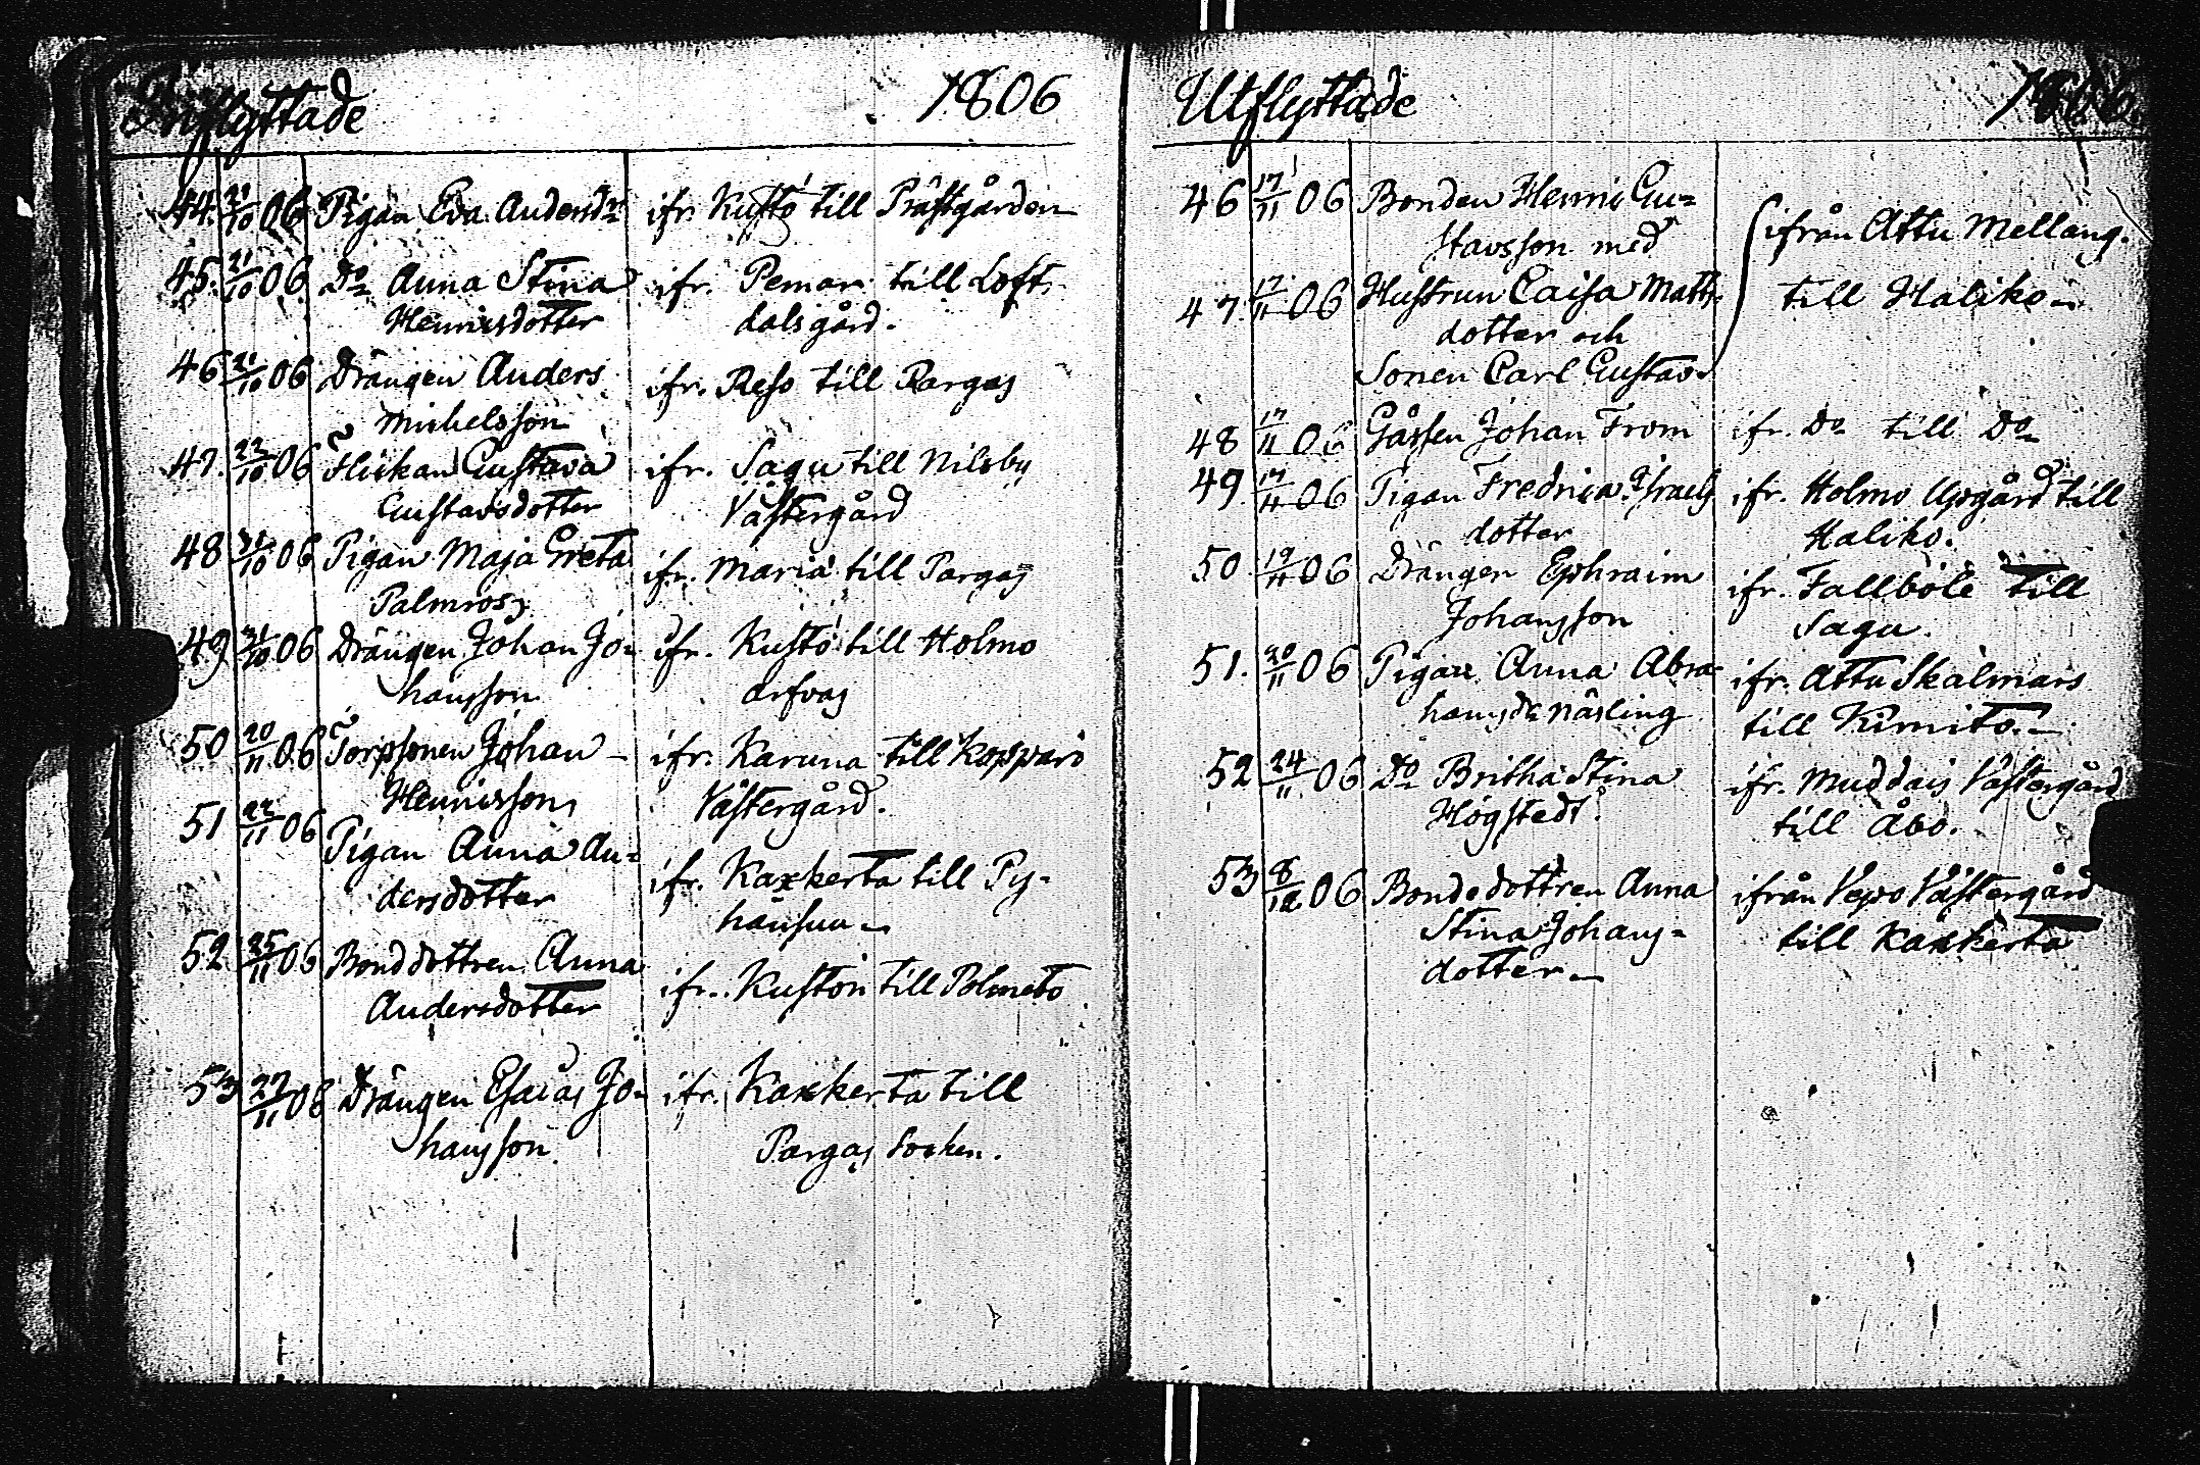 Inflyttade 1806
44. 21/10 06 Pigan Eva Andersdr ifr. Kustö till Prästgården
45. 21/10 06 Do Anna Stina ifr. Pemar till Lofts-
Henricsdotter dalsgård.
46 21/10 06 Drängen Anders ifr. Reso till Pargas
Michelsson
47. 22/10 06 Flickan Gustava ifr. Sagu till Nilsby
Gustavsdotter Västergård
48 31/10 06 Pigan Maja Greta ifr. Mariä till Pargas
Palmros,
49 31/10 06 Drängen Johan Jo- ifr. Kustö till Holmo
hansson arfvas
50 20/11 06 Torpsonen Johan – ifr. Karuna till Kopparö
Henricsson, Västergård.
51 22/11 06 Pigan Anna An= ifr. Kaxkerta till Py-
dersdotter hänsuu –
52 25/11 06 Bonddottren Anna ifr. Kustön till Polmeto
Andersdotter
53 27/11 06 Drängen Esaias Jo- ifr. Kaxkerta till
hansson. Pargas Socken.
Utflyttade 1806.
46 17/11 06 Bonden Henric Gu= ifrån Attu Mellang.
stavsson med
47. 17/11 06 Hustrun Caisa Matts- till Haliko –
dotter och
Sonen Carl Gustav
48 17/11 06 Gåssen Johan From ifr. Do till Do
49. 17/11 06 Pigan Fredrica Israels ifr. Holmo Upgård till
dotter Haliko.
50. 19/11 06 Drängen Ephraim ifr. Fallböle till
Johansson Sagu.
51. 20/11 06 Pigan Anna Abra- ifr. Attu Skälmars
hamsdr Näsling till Kimito. –
52 24/11 06 Do Britha Stina ifr. Muddais Västergård
Högstedt. till Åbo.
53 8/12 06 Bondedottren Anna ifrån Vepo Västergård
Stina Johans- till Kaxkerta
dotter –